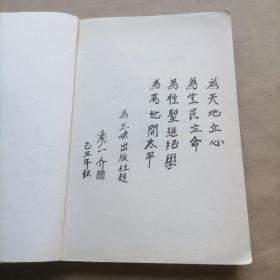 為天地立心
為生民立命
為往聖繼絕學
為萬世開太平
為三峽出版社題
湯一介
己丑年秋